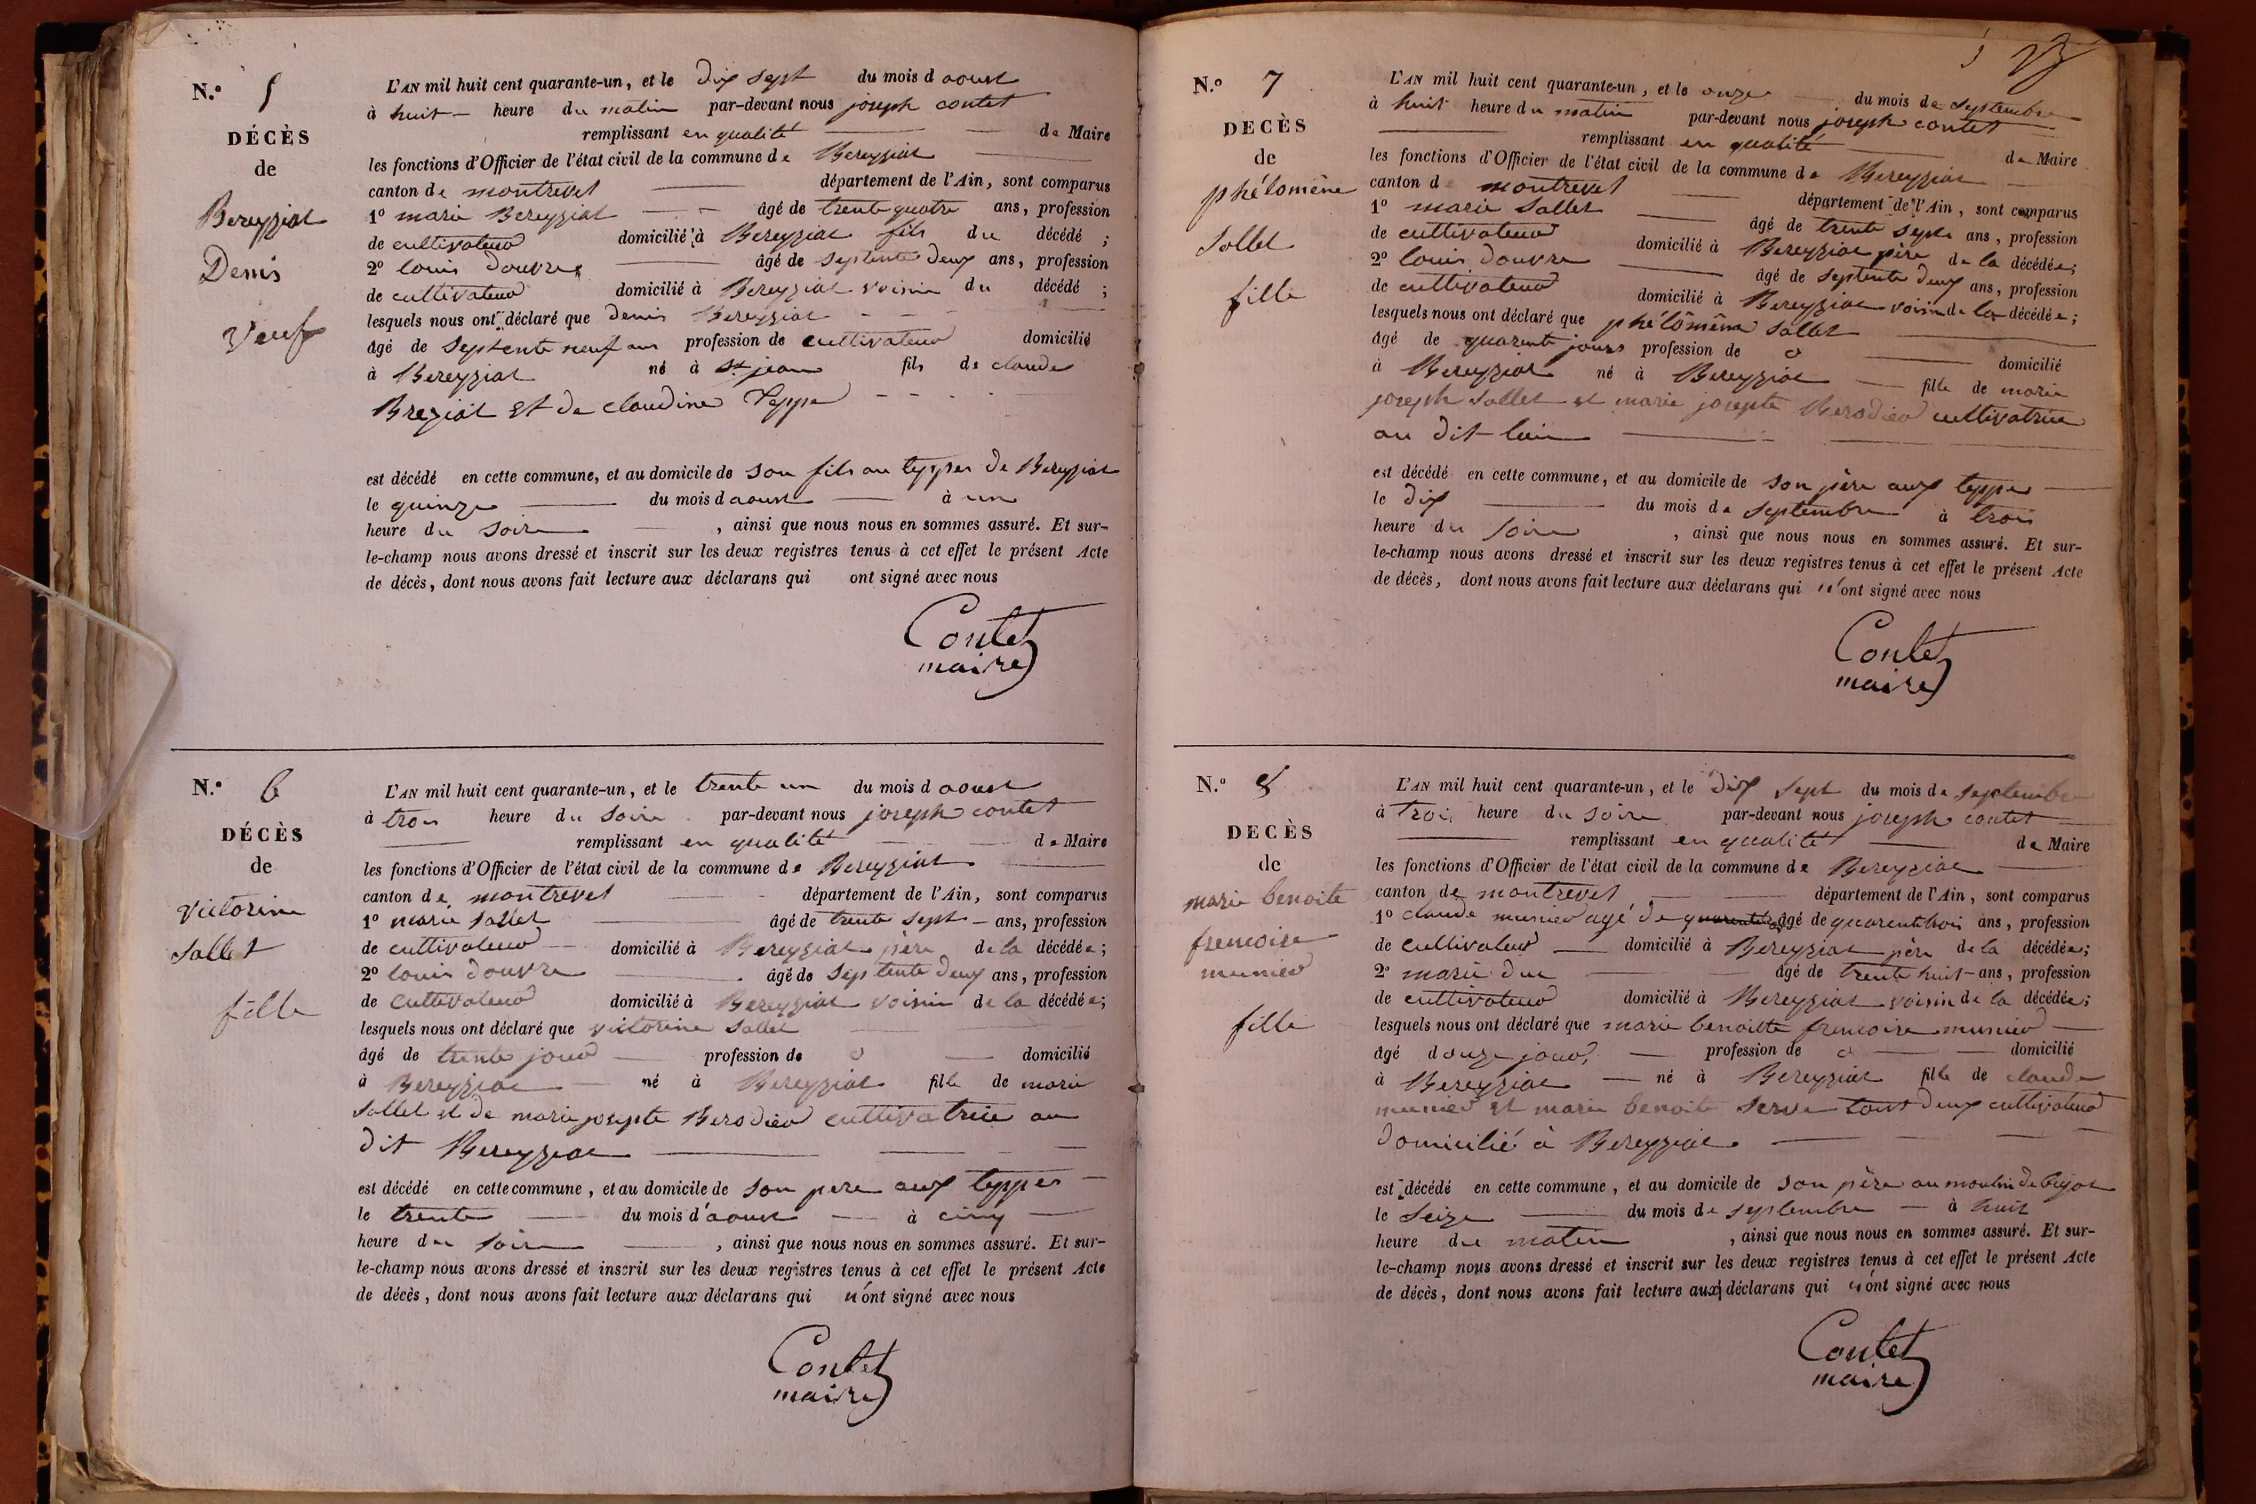 N.º 5
DÉCÈS
de
Bereyziat
Denis
Veuf
L'AN mil huit cent quarante-un, et le dix sept du mois d aoust
à huit heure du matin par-devant nous joseph contet
remplissant en qualité de Maire
les fonctions d'Officier de l'état civil de la commune de Bereyziat
canton de montrevel département de l'Ain, sont comparus
1º marie Bereyziat âgé de trente quatre ans, profession
de cultivateur domicilié à Bereyziat fils du décédé ;
2º louis douvre âgé de septente deux ans, profession
de cultivateur domicilié à Bereyziat voisin du décédé ;
lesquels nous ont déclaré que denis Bereyziat
âgé de septente neuf ans profession de cultivateur domicilié
à Bereyziat né à St jean fils de claude
Breziat et de claudine Teppe
est décédé en cette commune, et au domicile de son fils au teppes de Bereyziat
le quinze du mois d aoust à un
heure du soire , ainsi que nous nous en sommes assuré. Et sur-
le-champ nous avons dressé et inscrit sur les deux registres tenus à cet effet le présent Acte
de décès, dont nous avons fait lecture aux déclarans qui ont signé avec nous
Contet
maire
N.º 6
DÉCÈS
de
victorine
Sallet
fille
L'AN mil huit cent quarante-un, et le trente un du mois d aoust
à trois heure du soire par-devant nous joseph contet
remplissant en qualité de Maire
les fonctions d'Officier de l'état civil de la commune de Bereyziat
canton de montrevel département de l'Ain, sont comparus
1º marie Sallet âgé de trente sept ans, profession
de cultivateur domicilié à Bereyziat père de la décédée;
2º louis douvre âgé de septente deux ans, profession
de cultivateur domicilié à Bereyziat voisin de la décédée;
lesquels nous ont déclaré que victorine Sallet
âgé de trente jour profession de o domicilié
à Bereyziat né à Bereyziat fille de marie
Sallet et de marie josepte Berodier cultivatrice au
dit Bereyziat
est décédé en cette commune, et au domicile de son pere aux teppes
le trente du mois d'aoust à cinq
heure du soire , ainsi que nous nous en sommes assuré. Et sur-
le-champ nous avons dressé et inscrit sur les deux registres tenus à cet effet le présent Acte
de décès, dont nous avons fait lecture aux déclarans qui n'ont signé avec nous
Contet
maire
N.º 7
DECÈS
de
phélomène
Sallet
fille
L'AN mil huit cent quarante-un, et le onze du mois de septembre
à huit heure du matin par-devant nous joseph contet
remplissant en qualité de Maire
les fonctions d'Officier de l'état civil de la commune de Bereyziat
canton d montrevel département de l'Ain, sont comparus
1º marie Sallet âgé de trente sept ans, profession
de cultivateur domicilié à Bereyziat père de la décédée;
2º louis douvre âgé de septente deux ans, profession
de cultivateur domicilié à Bereyziat voisin de la décédée;
lesquels nous ont déclaré que phélomène Sallet
âgé de quarente jours profession de o domicilié
à Bereyziat né à Bereyziat fille de marie
joseph Sallet et marie josepte Berodier cultivatrice
au dit lieu
est décédé en cette commune, et au domicile de son père aux teppes
le dix du mois de septembre à trois
heure du soire , ainsi que nous nous en sommes assuré. Et sur-
le-champ nous avons dressé et inscrit sur les deux registres tenus à cet effet le présent Acte
de décès, dont nous avons fait lecture aux déclarans qui n'ont signé avec nous
Contet
maire
N.º 8
DECÈS
de
marie benoite
francoise
munier
fille
L'AN mil huit cent quarante-un, et le dix sept du mois de septembre
à trois heure du soire par-devant nous joseph contet
remplissant en qualité de Maire
les fonctions d'Officier de l'état civil de la commune de Bereyziat
canton de montrevel département de l'Ain, sont comparus
1º claude munier agé de âgé de quarentetrois ans, profession
de cultivateur domicilié à Bereyziat père de la décédée;
2º marie duc âgé de trente huit ans, profession
de cultivateur domicilié à Bereyziat voisin de la décédée;
lesquels nous ont déclaré que marie benoitte francoise munier
âgé douze jour profession de o domicilié
à Bereyziat né à Bereyziat fille de claude
munier et marie benoite serve tout deux cultivateur
domicilié à Bereyziat
est décédé en cette commune, et au domicile de son père au moulin de
le seize du mois de septembre à huit
heure du matin , ainsi que nous nous en sommes assuré. Et sur-
le-champ nous avons dressé et inscrit sur les deux registres tenus à cet effet le présent Acte
de décès, dont nous avons fait lecture aux déclarans qui n'ont signé avec nous
Contet
maire